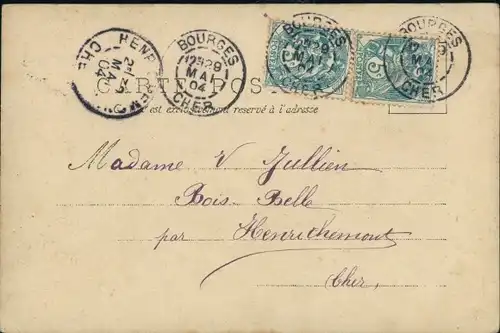 BOURGES
MAI
04
CHER
BOURGES
MAI
CHER
BOURGES
MAI
04
CHER
CARTE POS
est exclusivement reservé à l'adresse
Madame V Jullien
Bois Belle
par Henrichemont
Cher